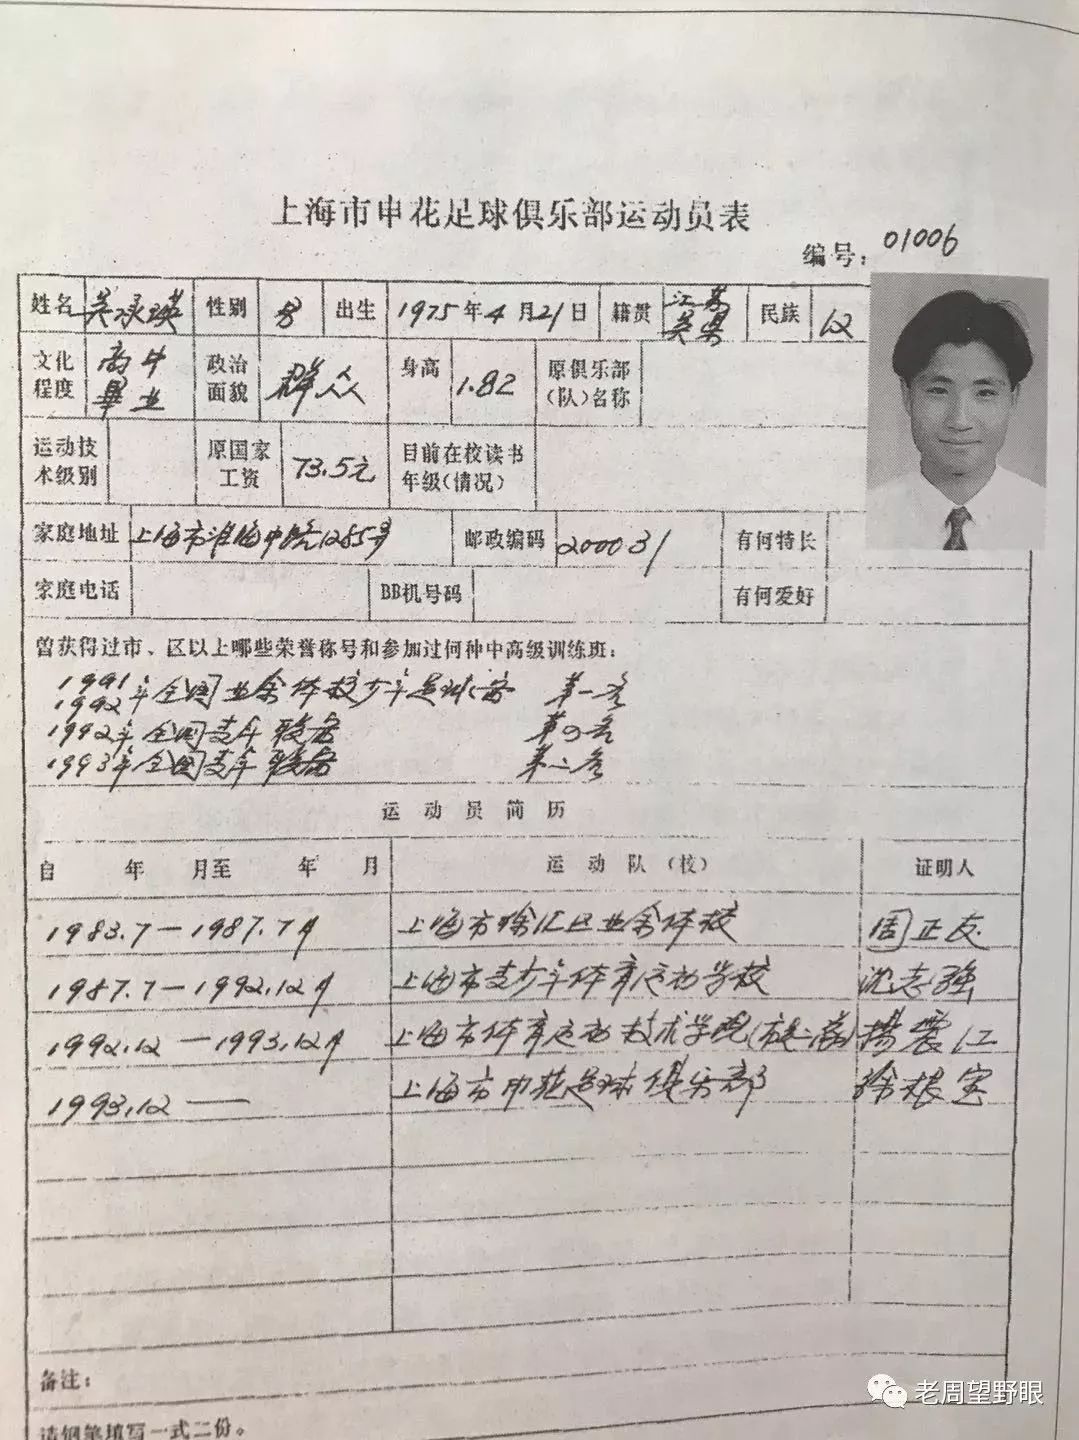 上海市申花足球俱乐部运动员表
编号：01006
姓名 吴承瑛 性别 男 出生 1975年4月21日 籍贯 江苏吴县 民族 汉
文化程度 高中畢业 政治面貌 群众 身高 1.82 原俱乐部（队）名称
运动技术级别 原国家工资 73.5元 目前在校读书年级(情况)
家庭地址 上海市淮海中路1285号 邮政编码 200031 有何特长
家庭电话 BB机号码 有何爱好
曾获得过市、区以上哪些荣誉称号和参加过何种中高级训练班：
1991
1992年全国业余体校少年足球比赛 第一名
1992年全国青年联赛 第四名
1993年全国青年联赛 第二名
运动员简历
自 年 月至 年 月 运动队（校） 证明人
1983.7—1987.7月 上海市徐汇区业余体校 周正友
1987.7—1992.12月 上海市青少年体育运动学校 沈志强
1992.12—1993.12月 上海市体育运动技术学院 杨震江
1993.12—— 上海市申花足球俱乐部 徐根宝
备注：
请钢笔填写一式二份。
老周望野眼